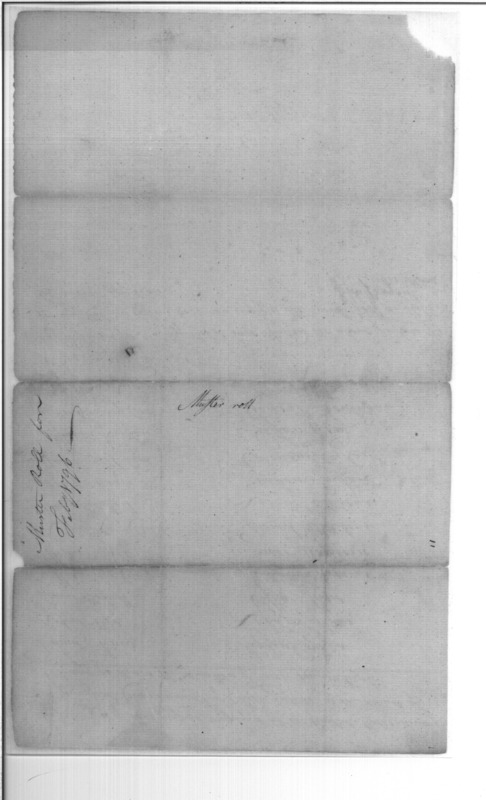 Muster Roll for
Feby 1796
Muster roll